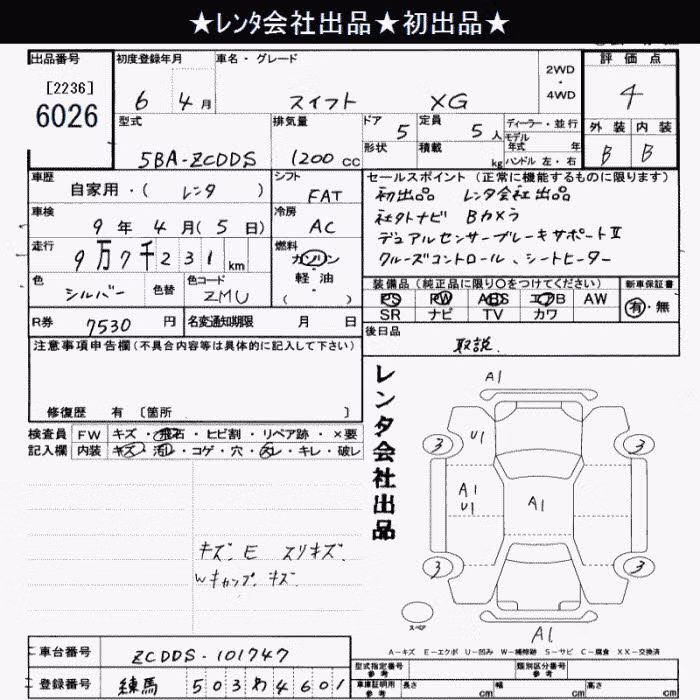 ★レンタ会社出品★初出品★
出品番号
[2236]
6026
初度登録年月
6 4月
車名・グレード
スイフト XG
2WD
・
4WD
評価点
4
外装 内装
B B
型式
5BA-ZCDDS
排気量
1200 CC
ドア
5
形状
定員
5人
積載
kg
ディーラー・並行
モデル
年式 年
ハンドル 左・右
車歴
自家用・( レンタ )
シフト
FAT
車検
9年 4月( 5日)
冷房
AC
走行
9万7千231km
燃料
ガソリン
・
軽油
・
( )
色
シルバー
色替
色コード
ZMU
R券
7530円
名変通知期限 月 日
セールスポイント(正常に機能するものに限ります)
初出品 レンタ会社出品
社外ナビ Bカメラ
デュアルセンサーブレーキサポートⅡ
クルーズコントロール、シートヒーター
装備品(純正品に限り○をつけてください)
PS PW ABS エアB AW
SR ナビ TV カワ
新車保証書
有・無
後日品
取説
注意事項申告欄(不具合内容等は具体的に記入して下さい)
修復歴 有〔箇所 〕
検査員 FW キズ・飛石・ヒビ割・リペア跡・×要
記入欄 内装 キズ・汚レ・コゲ・穴・スレ・キレ・破レ
キズ、E スリキズ、
Wキャップ、キズ
レンタ会社出品
A1
3
U1
3
A1
U1
A1
3
3
スペア
A1
A-キズ E-エクボ U-凹み W-補修跡 S-サビ C-腐食 XX-交換済
車台番号
ZCDDS-101747
登録番号
練馬 503わ4601
型式指定番号
参考
類別区分番号
参考
車庫証明用
参考
長さ cm
幅 cm
高さ cm